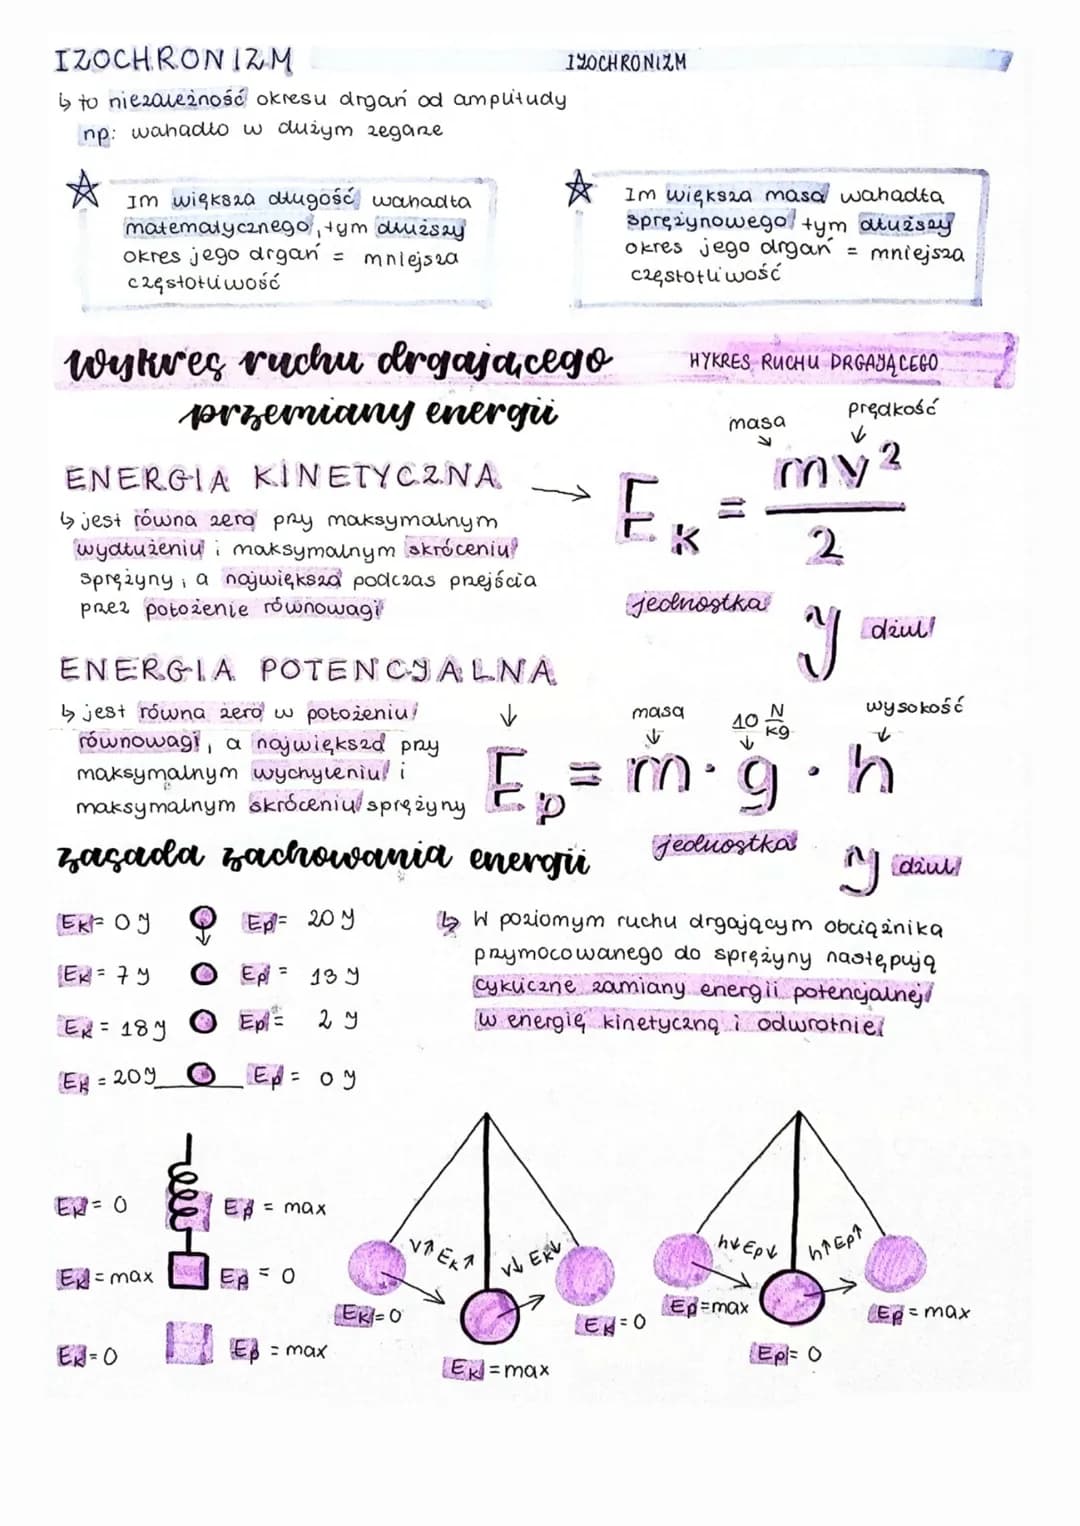 IZOCHRONIZM
IZOCHRONIZM
↳ to niezależność okresu drgań od amplitudy
np: wahadło w dużym zegarze
☆ Im większa długość wahadła
matematycznego, tym dłuższy
okres jego drgań = mniejsza
częstotliwość
☆ Im większa masa wahadła
sprężynowego tym dłuższy
okres jego drgań = mniejsza
częstotliwość
wykres ruchu drgającego
WYKRES RUCHU DRGAJĄCEGO
przemiany energii
masa
prędkość
ENERGIA KINETYCZNA → E_k = mv²/2
↳ jest równa zero przy maksymalnym
wydłużeniu i maksymalnym skróceniu
sprężyny, a największa podczas przejścia
przez położenie równowagi
jednostka
J dżul
ENERGIA POTENCJALNA
↳ jest równa zero w położeniu
równowagi, a największa przy
maksymalnym wychyleniu i
maksymalnym skróceniu sprężyny
masa
10 N/kg
wysokość
E_p = m · g · h
jednostka
J dżul
zasada zachowania energii
Ek = 0 J Ep = 20 J
Ek = 7 J Ep = 13 J
Ek = 18 J Ep = 2 J
Ek = 20 J Ep = 0 J
↳ W poziomym ruchu drgającym obciążnika
przymocowanego do sprężyny następują
cykliczne zamiany energii potencjalnej
w energię kinetyczną i odwrotnie
Ek = 0 Ep = max
Ek = max Ep = 0
Ek = 0 Ep = max
v↑ Ek↑
v↓ Ek↓
Ek = 0
Ek = max
Ek = 0
h↓ Ep↓
h↑ Ep↑
Ep = max
Ep = 0
Ep = max